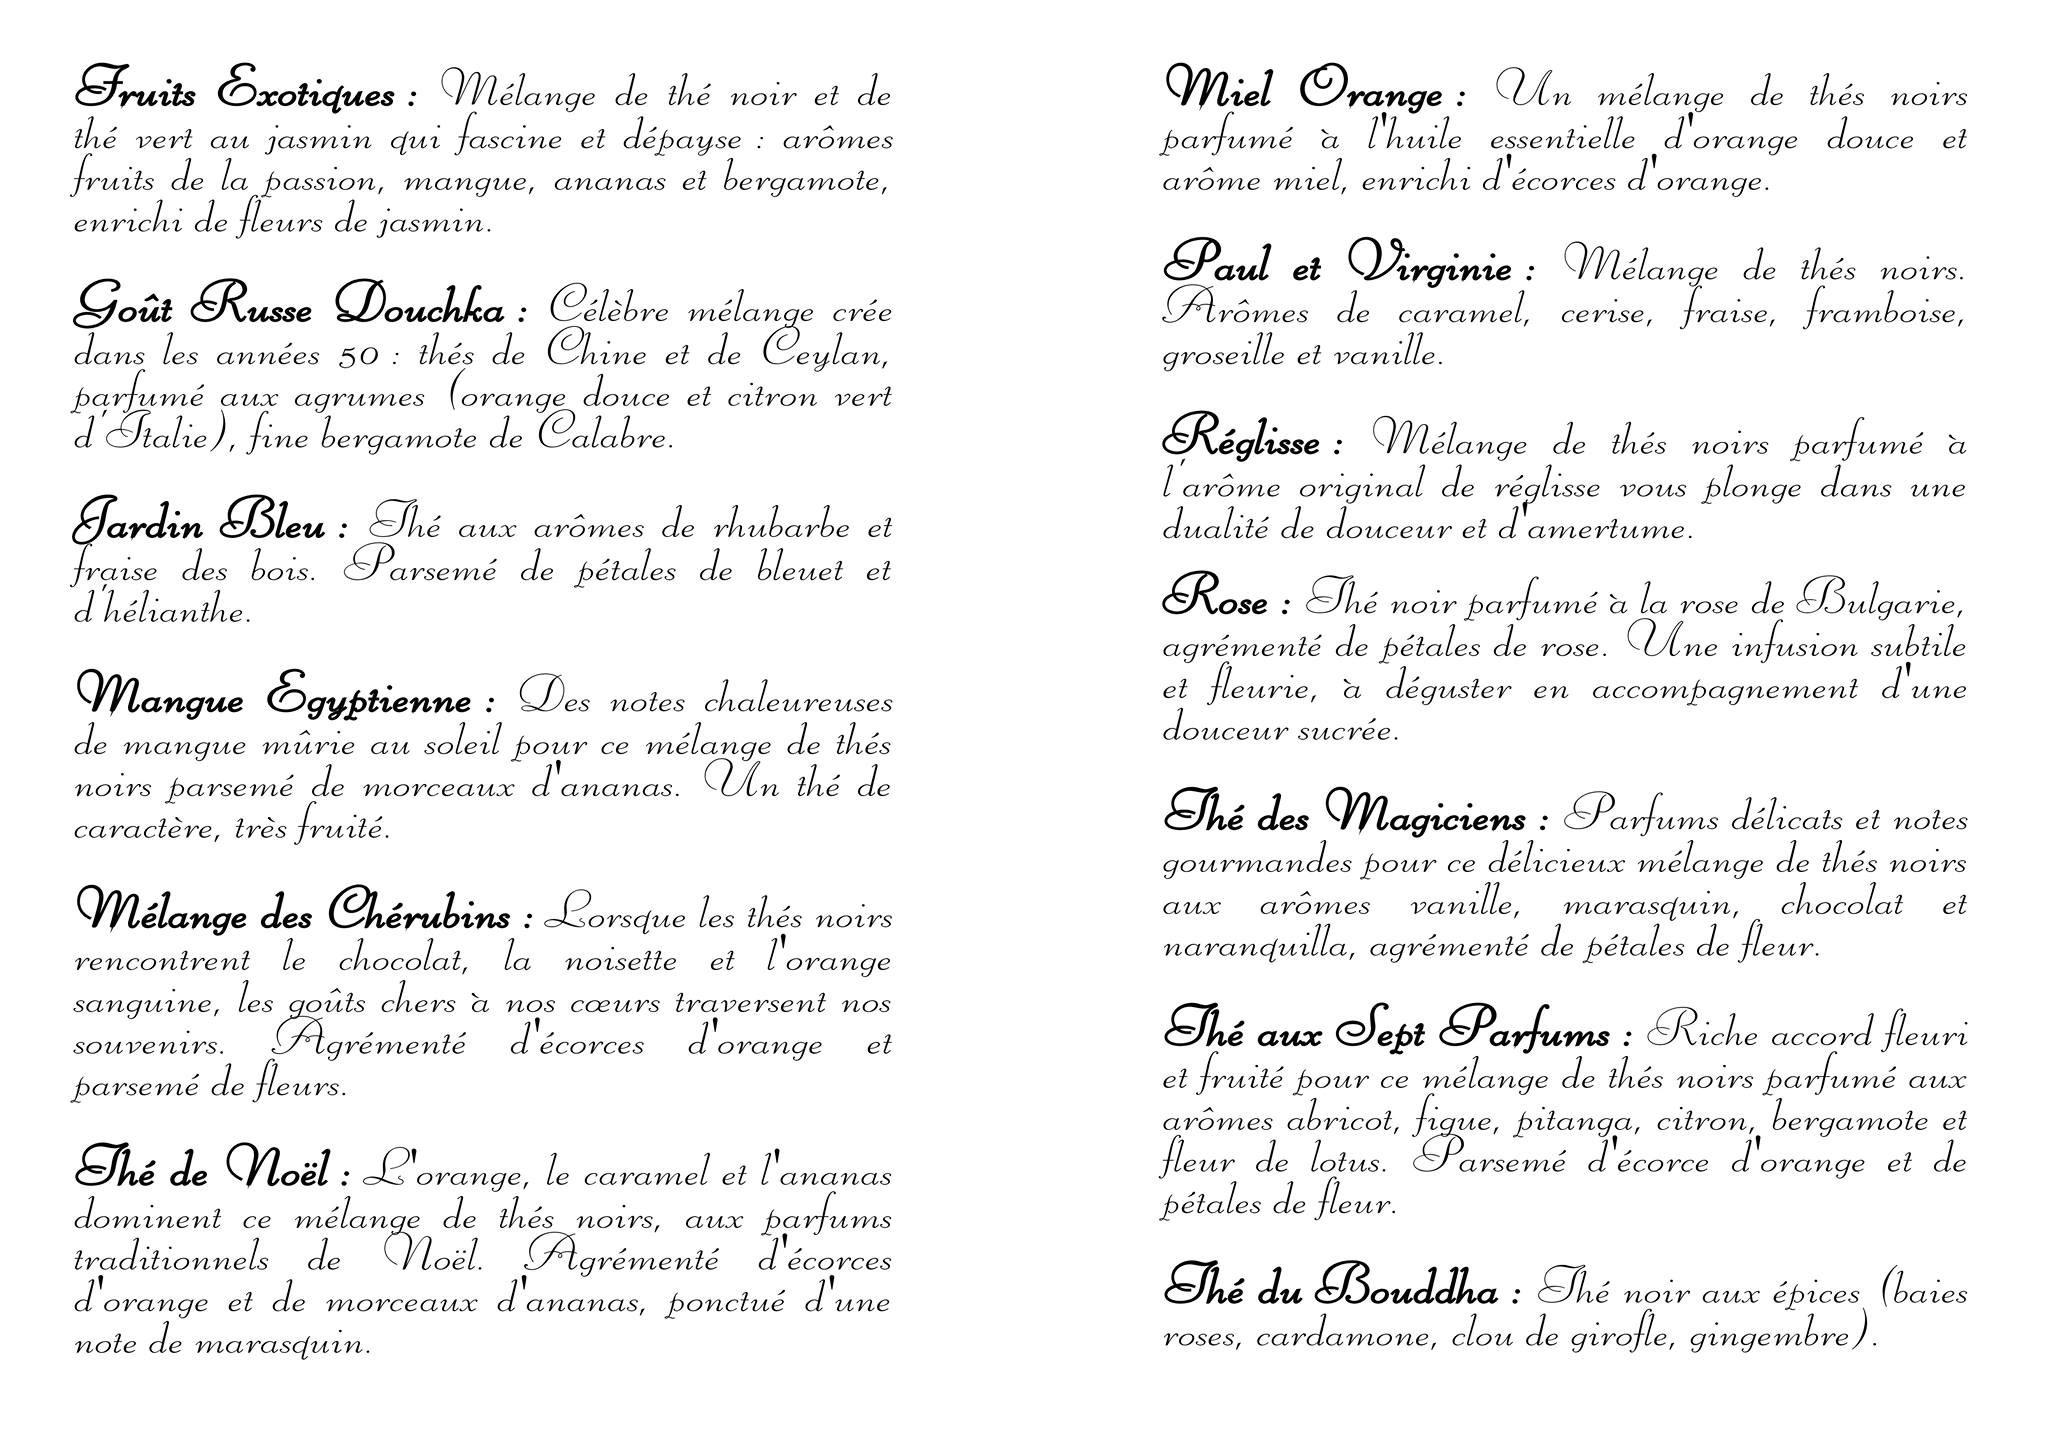 Fruits Exotiques : Mélange de thé noir et de
thé vert au jasmin qui fascine et dépayse : arômes
fruits de la passion, mangue, ananas et bergamote,
enrichi de fleurs de jasmin.
Goût Russe Douchka : Célèbre mélange crée
dans les années 50 : thés de Chine et de Ceylan,
parfumé aux agrumes (orange douce et citron vert
d'Italie), fine bergamote de Calabre.
Jardin Bleu : Thé aux arômes de rhubarbe et
fraise des bois. Parsemé de pétales de bleuet et
d'hélianthe.
Mangue Egyptienne : Des notes chaleureuses
de mangue mûrie au soleil pour ce mélange de thés
noirs parsemé de morceaux d'ananas. Un thé de
caractère, très fruité.
Mélange des Chérubins : Lorsque les thés noirs
rencontrent le chocolat, la noisette et l'orange
sanguine, les goûts chers à nos cœurs traversent nos
souvenirs. Agrémenté d'écorces d'orange et
parsemé de fleurs.
Thé de Noël : L'orange, le caramel et l'ananas
dominent ce mélange de thés noirs, aux parfums
traditionnels de Noël. Agrémenté d'écorces
d'orange et de morceaux d'ananas, ponctué d'une
note de marasquin.
Miel Orange : Un mélange de thés noirs
parfumé à l'huile essentielle d'orange douce et
arôme miel, enrichi d'écorces d'orange.
Paul et Virginie : Mélange de thés noirs.
Arômes de caramel, cerise, fraise, framboise,
groseille et vanille.
Réglisse : Mélange de thés noirs parfumé à
l'arôme original de réglisse vous plonge dans une
dualité de douceur et d'amertume.
Rose : Thé noir parfumé à la rose de Bulgarie,
agrémenté de pétales de rose. Une infusion subtile
et fleurie, à déguster en accompagnement d'une
douceur sucrée.
Thé des Magiciens : Parfums délicats et notes
gourmandes pour ce délicieux mélange de thés noirs
aux arômes vanille, marasquin, chocolat et
naranquilla, agrémenté de pétales de fleur.
Thé aux Sept Parfums : Riche accord fleuri
et fruité pour ce mélange de thés noirs parfumé aux
arômes abricot, figue, pitanga, citron, bergamote et
fleur de lotus. Parsemé d'écorce d'orange et de
pétales de fleur.
Thé du Bouddha : Thé noir aux épices (baies
roses, cardamone, clou de girofle, gingembre).